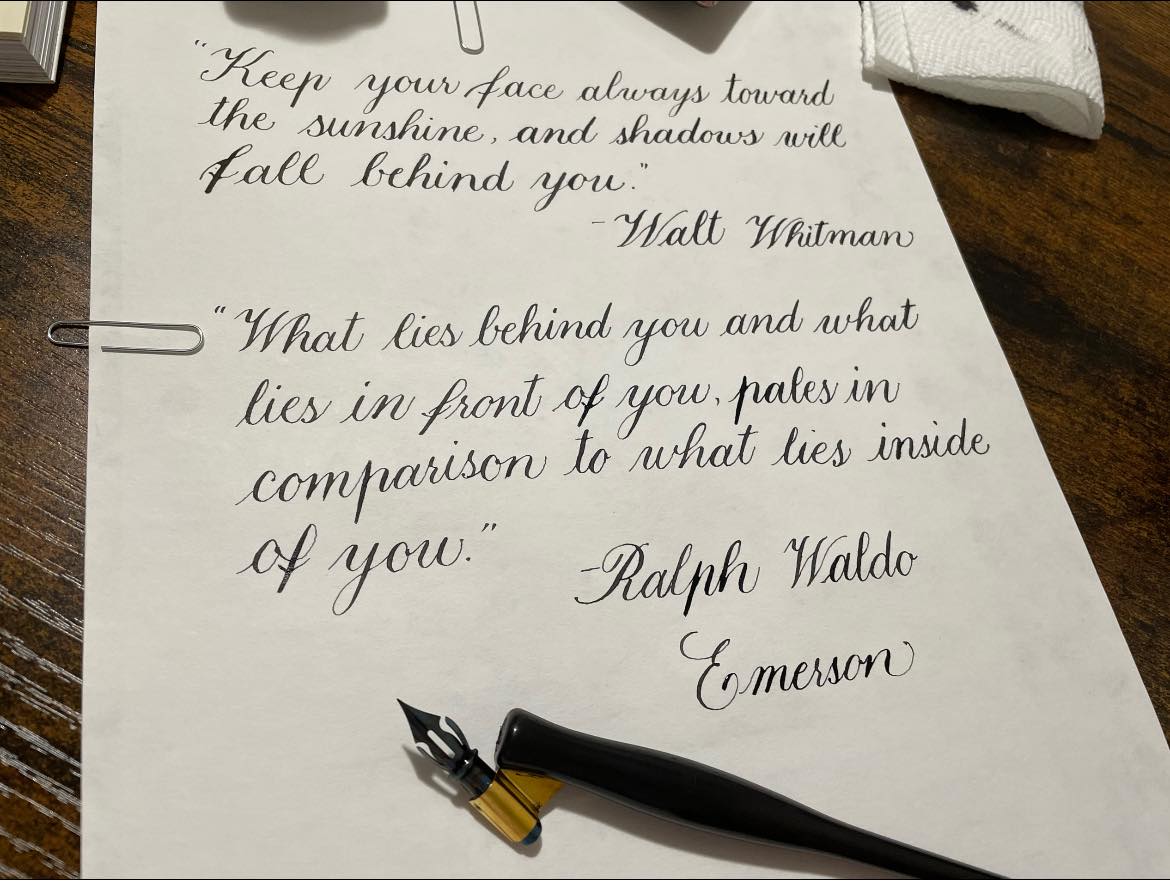 "Keep your face always toward
the sunshine, and shadows will
fall behind you."
-Walt Whitman
"What lies behind you and what
lies in front of you, pales in
comparison to what lies inside
of you."
-Ralph Waldo
Emerson